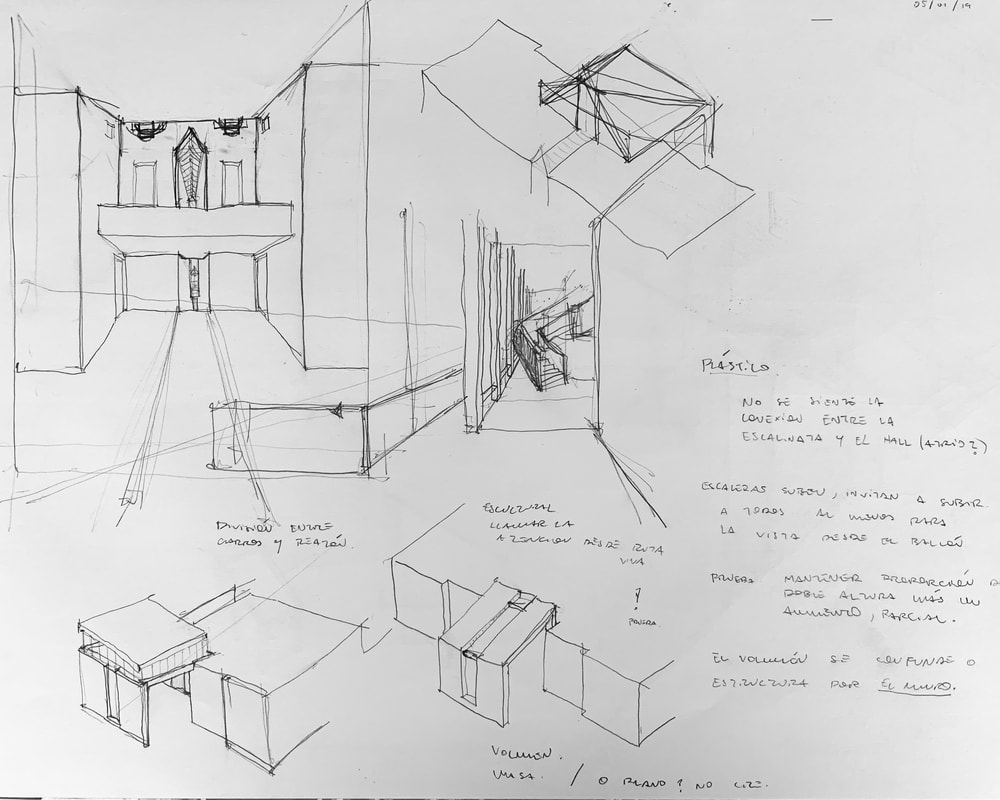 05/01/19
PLÁSTICO
NO SE SIENTE LA
CONEXIÓN ENTRE LA
ESCALINATA Y EL HALL (ATRIO?)
ESCALERAS SUBEN, INVITAN A SUBIR
A TODOS AL MENOS PARA
LA VISTA DESDE EL BALCÓN
PRUEBA MANTENER PROPORCIÓN D
DOBLE ALTURA MÁS UN
AUMENTO, PARCIAL.
EL VOLUMEN SE CONFUNDE O
ESTRUCTURA POR EL MURO.
DIVISIÓN ENTRE
CARROS Y PEATÓN.
ESCULTURAL
LLAMAR LA
ATENCIÓN DESDE RUTA
VIVA
PRUEBA.
VOLUMEN.
MASA. / O PLANO? NO